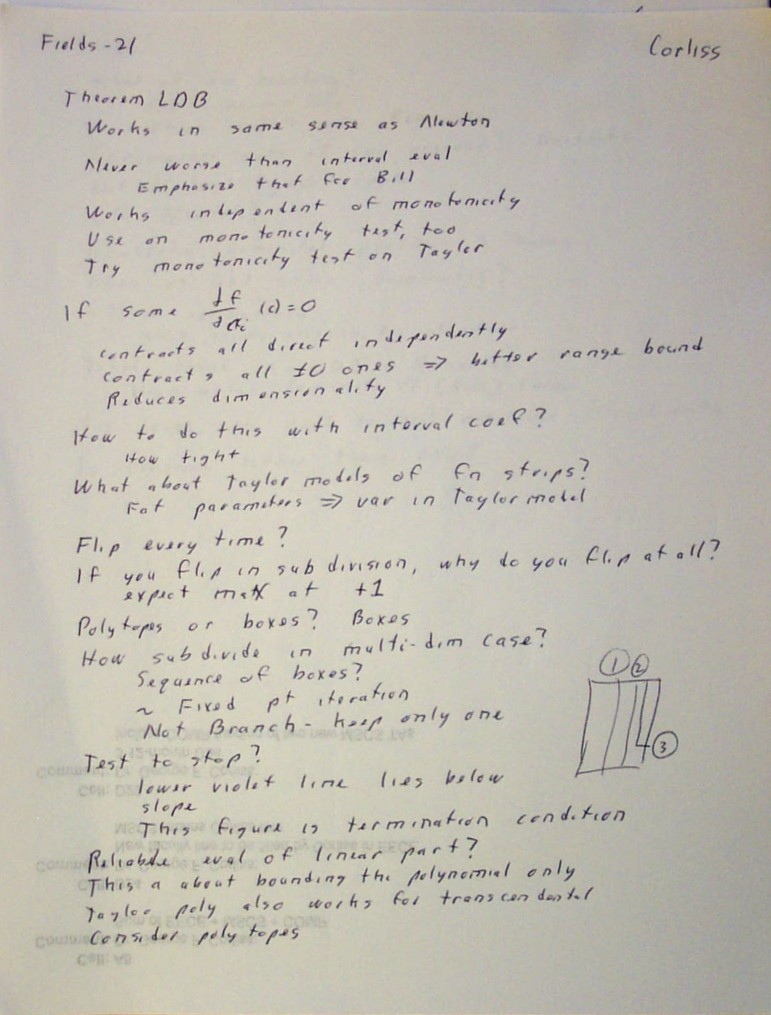 Fields - 21
Corliss
Theorem LDB
Works in same sense as Newton
Never worse than interval eval
Emphasize that for Bill
Works independent of monotonicity
Use on monotonicity test, too
Try monotonicity test on Taylor
If some ∂f/∂x_i (c) = 0
contracts all direct independently
contracts all ≠0 ones ⇒ better range bound
Reduces dimensionality
How to do this with interval coef?
How tight
What about Taylor models of fn strips?
Fat parameters ⇒ var in Taylor model
Flip every time?
If you flip in subdivision, why do you flip at all?
expect max at +1
Polytopes or boxes? Boxes
How subdivide in multi-dim case?
Sequence of boxes?
~ Fixed pt iteration
Not Branch - keep only one
① ②
③
Test to stop?
lower violet line lies below
slope
This figure is termination condition
Reliable eval of linear part?
This a about bounding the polynomial only
Taylor poly also works for transcendental
Consider polytopes